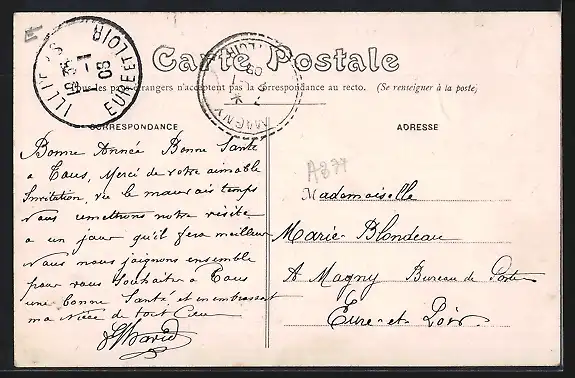 Carte Postale
Tous les pays étrangers n'acceptent pas la correspondance au recto. (Se renseigner à la poste)
CORRESPONDANCE
ADRESSE
ILLIERS
EURE ET LOIR
MAGNY
A877
Bonne Année Bonne Santé
a Tous, Merci de votre aimable
Invitation, vu le mauvais temps
Nous remettrons notre visite
a un jour qu'il fera meilleur
Nous nous joignons ensemble
pour vous souhaiter à Tous
une bonne Santé, et en embrassant
ma Nièce de tout Cœur
Mademoiselle
Marie Blondeau
A Magny Bureau de Poste
Eure-et-Loir